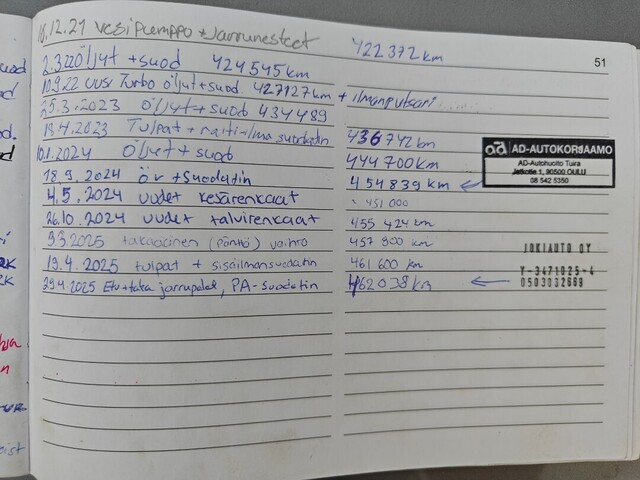 16.12.21 vesipumppu + Jarrunesteet 422 372 km
51
2.3.22 Öljyt + suod 424 545 km
10.9.22 Uusi Turbo öljyt + suod. 427127 km + ilmanputsari
25.3.2023 Öljyt + suod 434 489
Tulpat + raitisilma suodatin 436 742 km
10.1.2024 Öljyt + suod 444 700 km
ad AD-AUTOKORJAAMO
AD-Autohuolto Tuira
Jatkotie 1, 90500 OULU
08 542 5350
18.9.2024 ÖV + Suodatin 454 839 km
4.5.2024 uudet kesärenkaat 451 000
26.10.2024 uudet talvirenkaat 455 424 km
9.3.2025 takaäänen (pönttö) vaihto 457 900 km
JOKIAUTO OY
19.4.2025 tulpat + sisäilmansuodatin 461 600 km
Y-3471025-4
29.4.2025 Etu+taka jarrupalat, PA-suodatin 462 038 km
0503032669